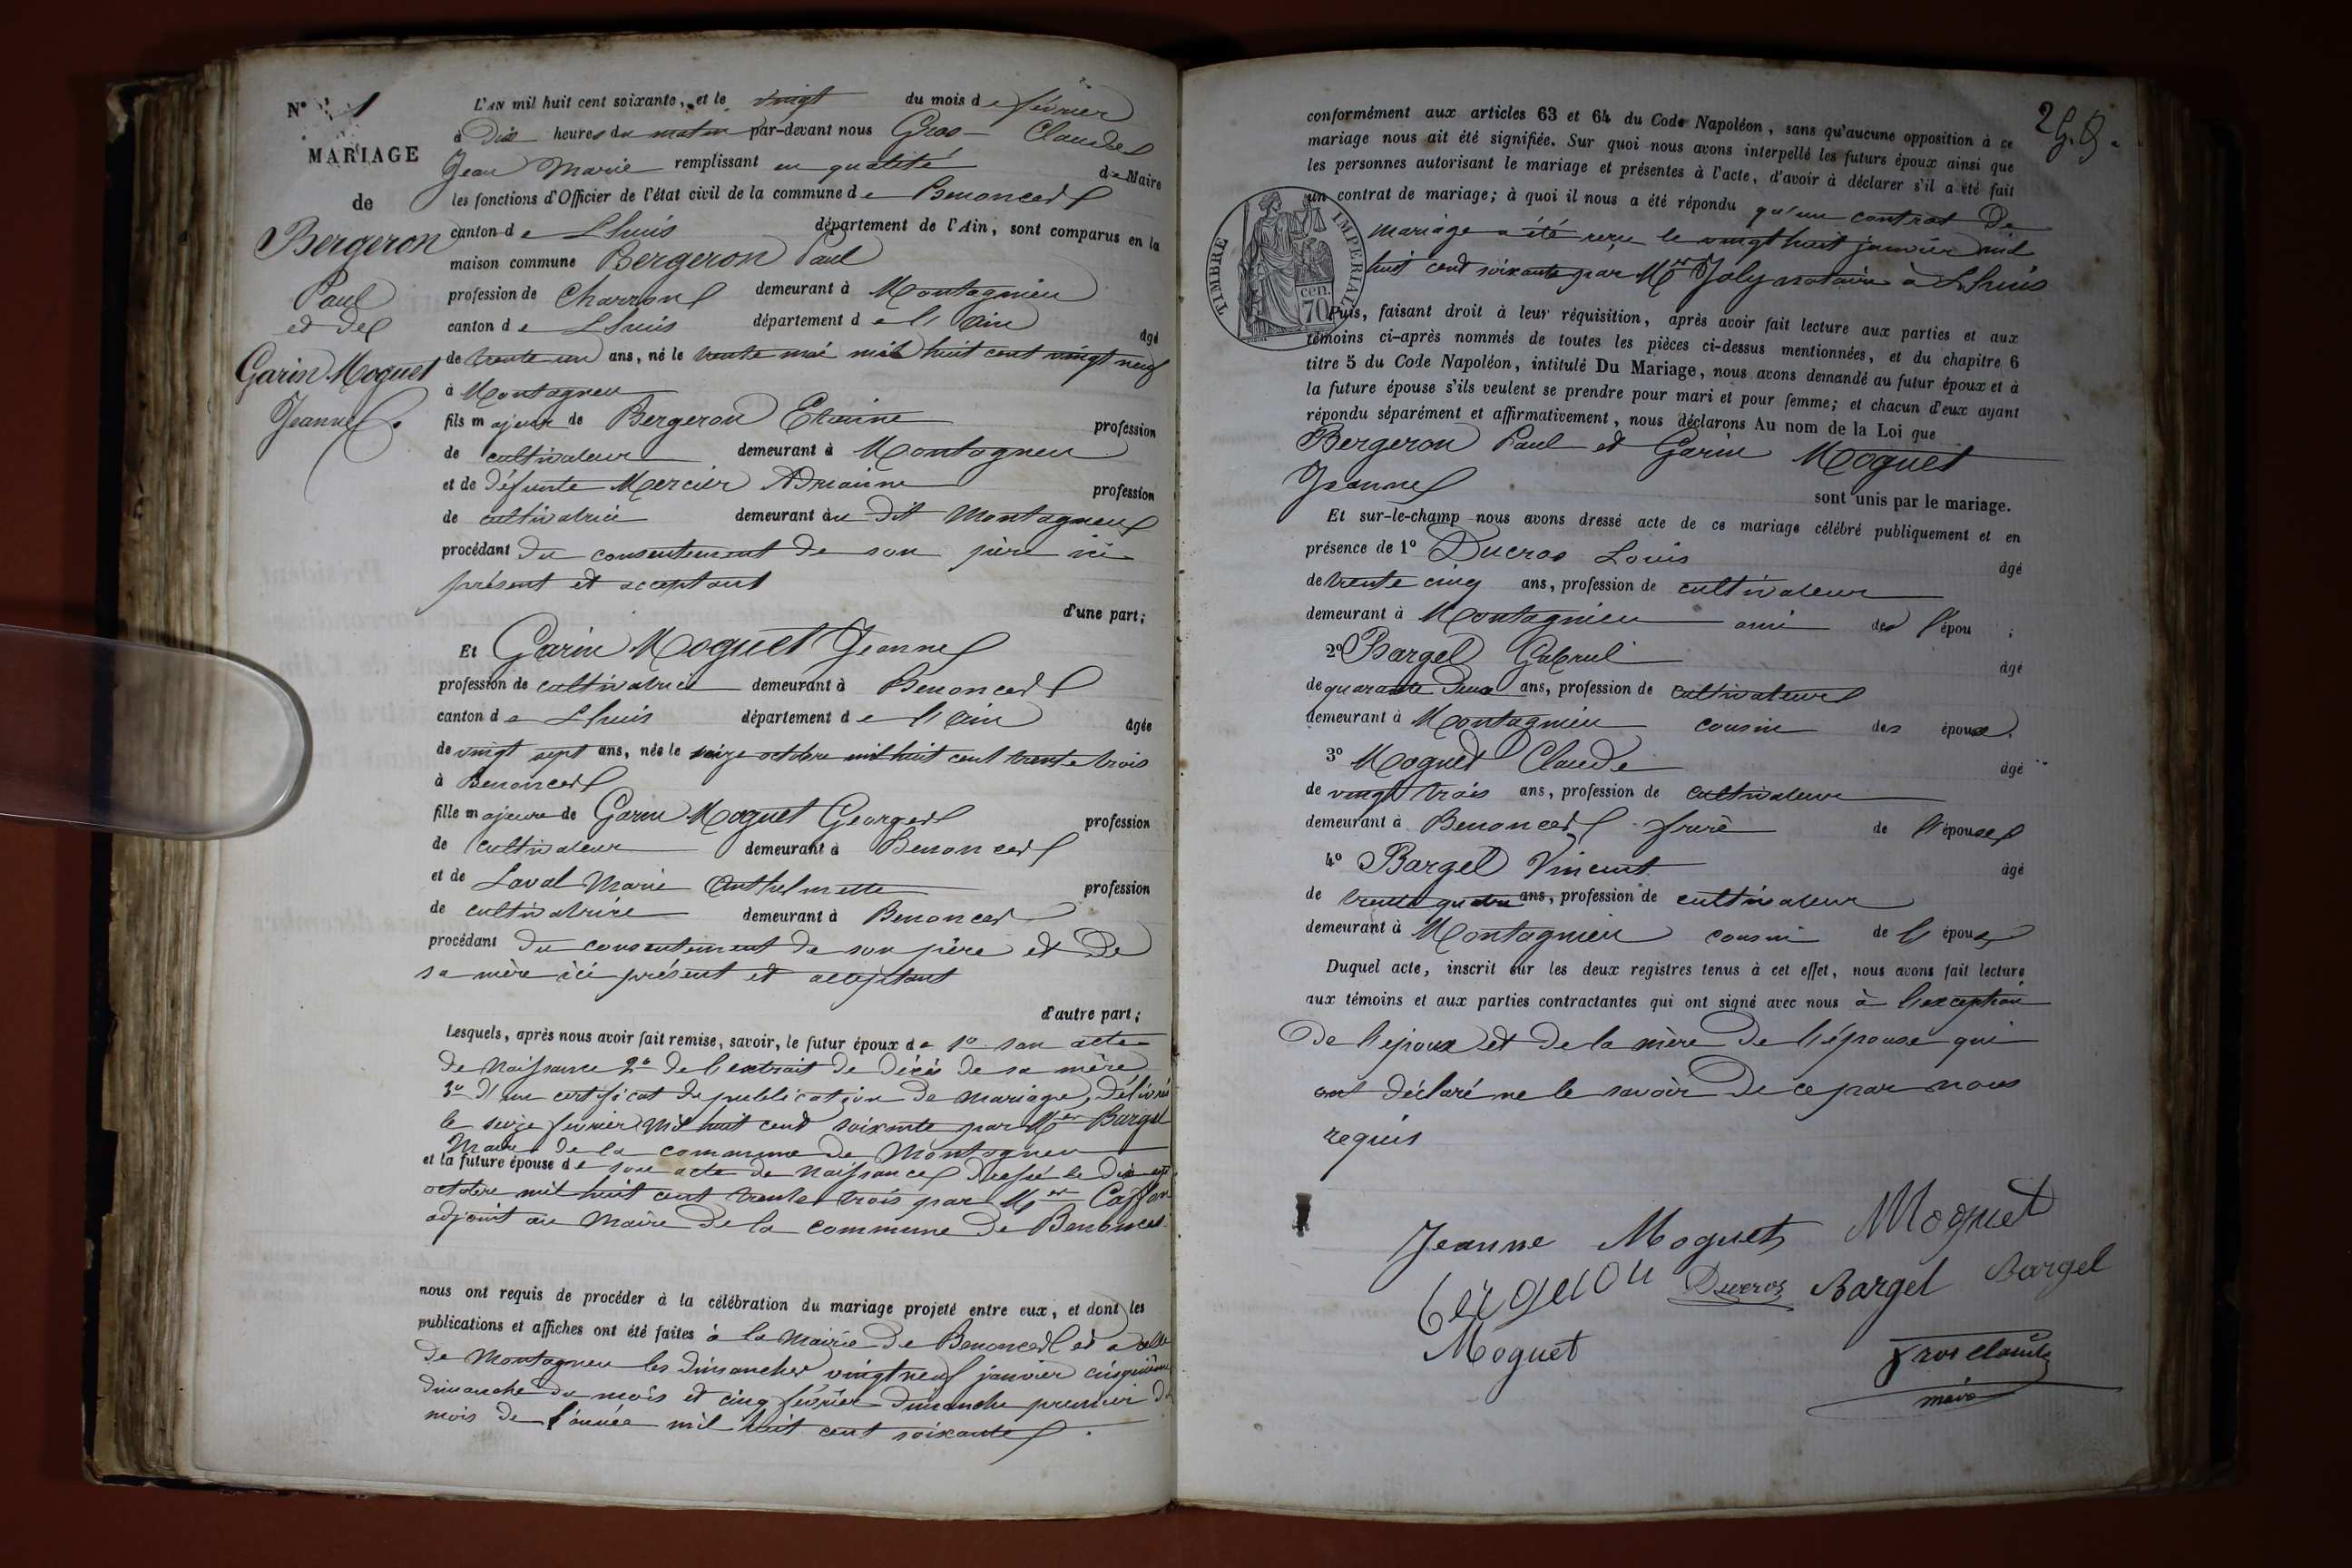 N° 1
MARIAGE
de
Bergeron
Paul
et de
Garin Moguet
Jeanne.
L'AN mil huit cent soixante, et le vingt du mois de février
à dix heures du matin par-devant nous Gros Claude
Jean Marie remplissant en qualité de Maire
les fonctions d'Officier de l'état civil de la commune de Benonces
canton de Lhuis département de l'Ain, sont comparus en la
maison commune Bergeron Paul
profession de Charron demeurant à Montagnieu
canton de Lhuis département de l'Ain âgé
de trente un ans, né le trente mai mil huit cent vingt neuf
à Montagneu
fils majeur de Bergeron Etienne profession
de cultivateur demeurant à Montagneu
et de défunte Mercier Adrianne profession
de cultivatrice demeurant au dit Montagneu
procédant du consentement de son père ici
présent et aceptant
d'une part;
Et Garin Moguet Jeanne
profession de cultivatrice demeurant à Benonces
canton de Lhuis département de l'Ain âgée
de vingt sept ans, née le seize octobre mil huit cent trente trois
à Benonces
fille majeure de Garin Moguet Georges profession
de cultivateur demeurant à Benonces
et de Laval Marie Anthelmette profession
de cultivatrice demeurant à Benonces
procédant du consentement de son père et de
sa mère ici présent et acceptant
d'autre part;
Lesquels, après nous avoir fait remise, savoir, le futur époux de 1° son acte
de Naissance 2° de l'extrait de décès de sa mère
3° d'un certificat de publication de mariage, délivré
le seize fevrier Mil huit cent soixante par Mer Bargel
Maire de la commune de Montagneu
et la future épouse de son acte de Naissance dressé le dix sept
octobre mil huit cent trente trois par Mer
adjoint au Maire de la commune de Benonces
nous ont requis de procéder à la célébration du mariage projeté entre eux, et dont les
publications et affiches ont été faites à la Mairie de Benonces et a celle
de Montagneu les dimanches vingt neuf janvier cinquième
dimanche du mois et cinq février dimanche premier du
mois de l'année mil huit cent soixante.
conformément aux articles 63 et 64 du Code Napoléon, sans qu'aucune opposition à ce
mariage nous ait été signifiée. Sur quoi nous avons interpellé les futurs époux ainsi que
les personnes autorisant le mariage et présentes à l'acte, d'avoir à déclarer s'il a été fait
un contrat de mariage; à quoi il nous a été répondu qu'un contrat de
mariage a été reçu le vingt huit janvier mil
huit cent soixante par Mer Joly notaire à Lhuis
TIMBRE IMPERIAL
70 cen.
Puis, faisant droit à leur réquisition, après avoir fait lecture aux parties et aux
témoins ci-après nommés de toutes les pièces ci-dessus mentionnées, et du chapitre 6
titre 5 du Code Napoléon, intitulé Du Mariage, nous avons demandé au futur époux et à
la future épouse s'ils veulent se prendre pour mari et pour femme; et chacun d'eux ayant
répondu séparément et affirmativement, nous déclarons Au nom de la Loi que
Bergeron Paul et Garin Moguet
Jeanne
sont unis par le mariage.
Et sur-le-champ nous avons dressé acte de ce mariage célébré publiquement et en
présence de 1° Ducros Louis âgé
de trente cinq ans, profession de cultivateur
demeurant à Montagnieu ami des l'épou ;
2° Bargel Gabriel âgé
de quarante deux ans, profession de cultivateur
demeurant à Montagnieu cousin des époux.
3° Moguet Claude âgé
de vingt trois ans, profession de cultivateur
demeurant à Benonces frère de l'épouse
4° Bargel Vincent âgé
de trente quatre ans, profession de cultivateur
demeurant à Montagnieu cousin de l'époux
Duquel acte, inscrit sur les deux registres tenus à cet effet, nous avons fait lecture
aux témoins et aux parties contractantes qui ont signé avec nous à l'exception
de l'epoux et de la mère de l'épouse qui
ont déclaré ne le savoir de ce par nous
requis
Jeanne Moguet Moguet
bergeron Ducros Bargel Bargel
Moguet
gros claude
maire